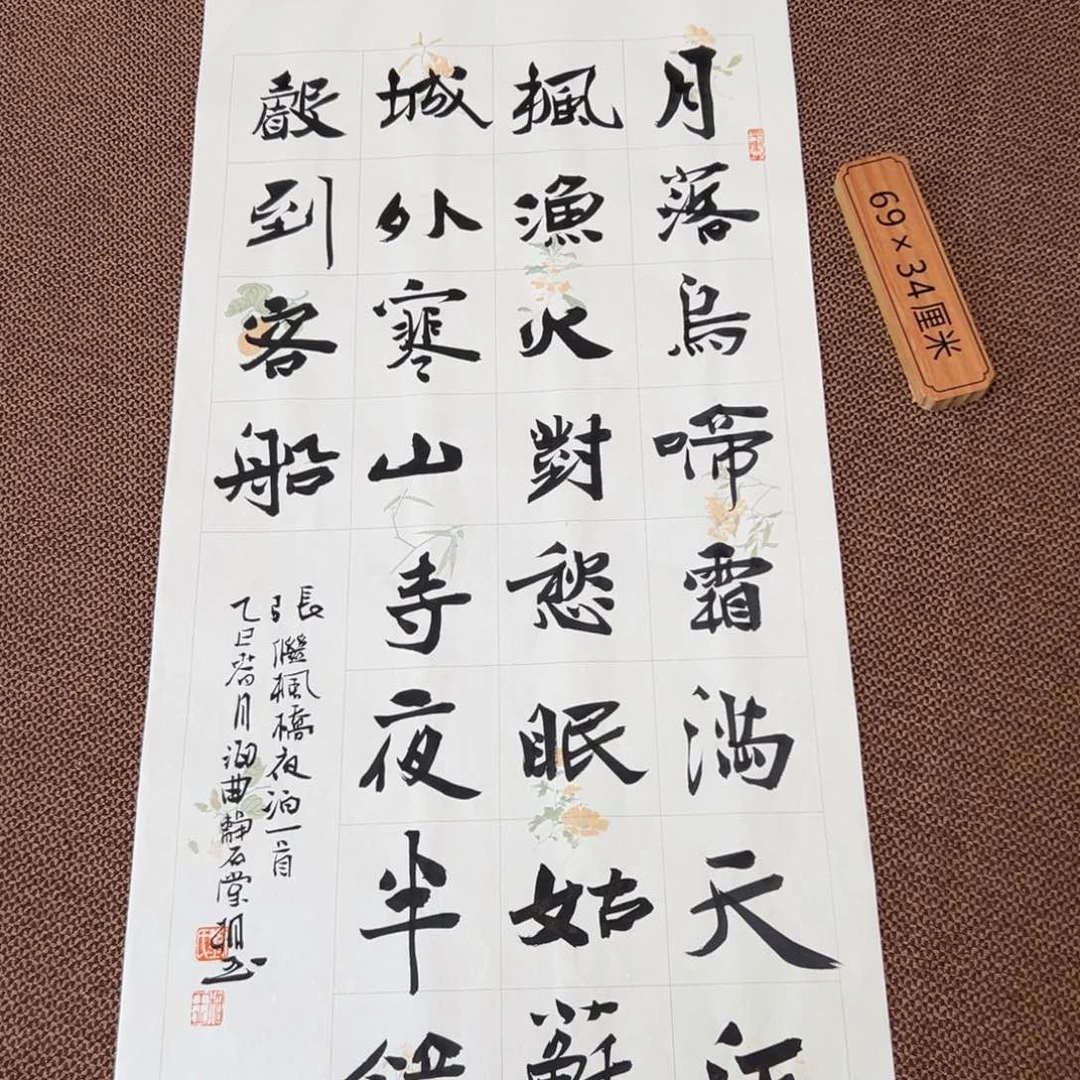 月落烏啼霜滿天江
楓漁火對愁眠姑蘇
城外寒山寺夜半鐘
聲到客船
張繼楓橋夜泊一首
乙巳
月
曲靜石堂
書
69×34厘米